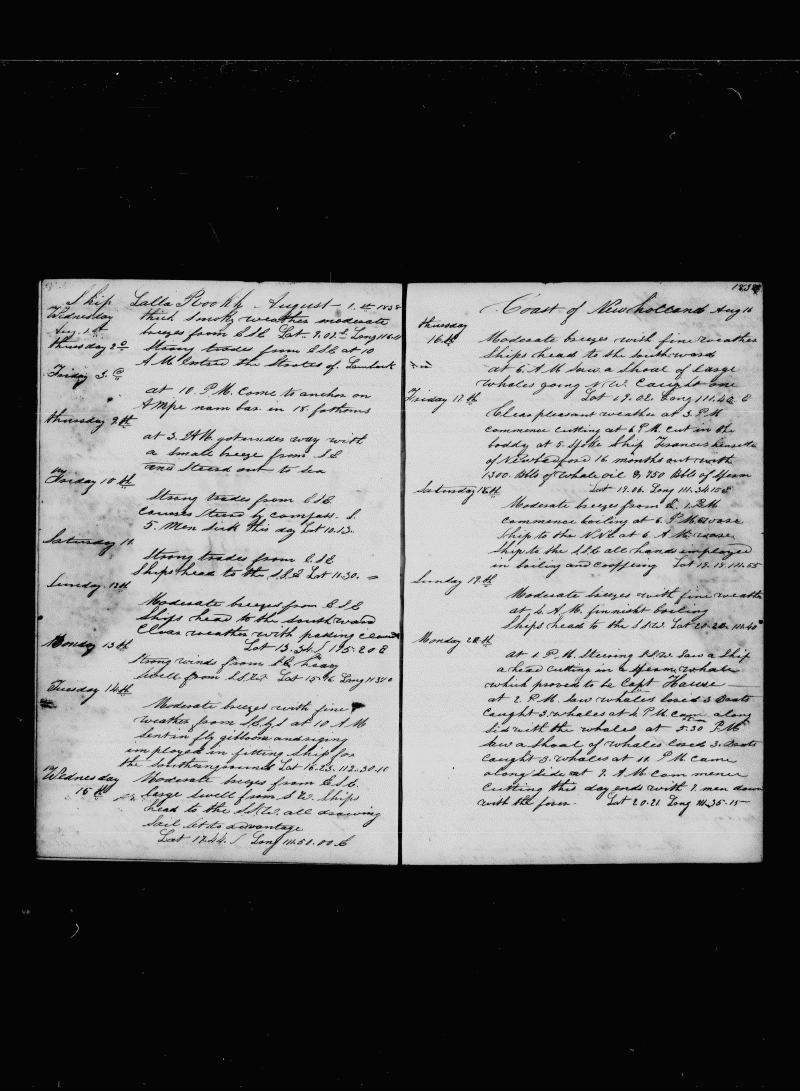 Ship Lalla Rookh August 1st 1838
Wednesday thick smoky weather moderate
Aug. 1st breezes from ESE Lat 9.02 S Long 116
thursday 2d Strong trades from ESE at 10
AM Entered the Straits of Lumbock
Friday 3d
at 10 P.M. Come to anchor on
Ampenam bar in 15 fathoms
thursday 9th
at 3 AM got under way with
a small breeze from SE
and Steard out to sea
Friday 10th
Strong trades from ESE
Courses Steard by compass S
5. Men Sick this day Lat 10.13.
Saturday 11
Strong trades from ESE
Ships head to the SSE Lat 11.30.
Sunday 12th
Moderate breezes from ESE
Ships head to the southward
Clear weather with passing clouds
Monday 13th Lat 13.34 S
Strong winds from SE heavy
swell from SSW Lat 15.16 Long 113.10
Tuesday 14th
Moderate breezes with fine
weather from SEbS at 10 AM
Sent in fly gibboom and riging
imployed in fitting Ship for
the Southeringround Lat 16.23. 112.30.10
Wednesday Moderate breezes from ESE.
15th large swell from SW. Ships
head to the SSW. all drawing
Sail Set to advantage
Lat 17.44. S Long 111.50.00 E
1838
Coast of New holland Aug 16
thursday
16th Moderate breezes with fine weather
Ships head to the southward
at 6 AM Saw a Shoal of large
whales going NW. Caught one
Friday 17th Lat 19.02 Long 111.42 E
Clear pleasant weather at 3 PM
commence cutting at 6 PM. cut in the
boddy at 5 Spoke Ship Francis
of New bedford 16 months out with
1300. bbls of whale oil & 750 bbls of Sperm
Saturday 18th Lat 19.06. Long 111.34.15 E
Moderate breezes from E. 1. PM
commence boiling at 6. P.M. ware
Ship to the at 6 A.M. ware
Ship to the SSE all hands employed
in boiling and coopering Lat 19.18. 111.55
Sunday 19th
Moderate breezes with fine weather
at 4 A.M. finnisht boiling
Ships heads to the SSW. Lat 20.20. 111.40
Monday 20th
at 1 P.M. Steering SSW. Saw a Ship
a head cutting in a Sperm whale
which proved to be Capt Hause
at 2. P.M. Saw whales loied 3 boats
Caught 3. whales at 4 P.M. came along
sid with the whales at 5.30 P.M
Saw a shoal of whales loied 3. boats
Caught 3. whales at 11. P.M came
along Side at 7. A.M commence
Cutting this day ends with 7. men down
with the fever. Lat 20.21 Long 111.35.15